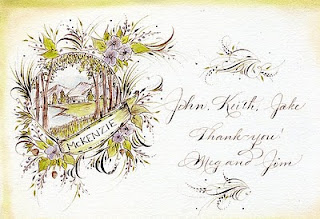 McKENZIE
John, Keith, Jake
Thank you!
Meg and Jim